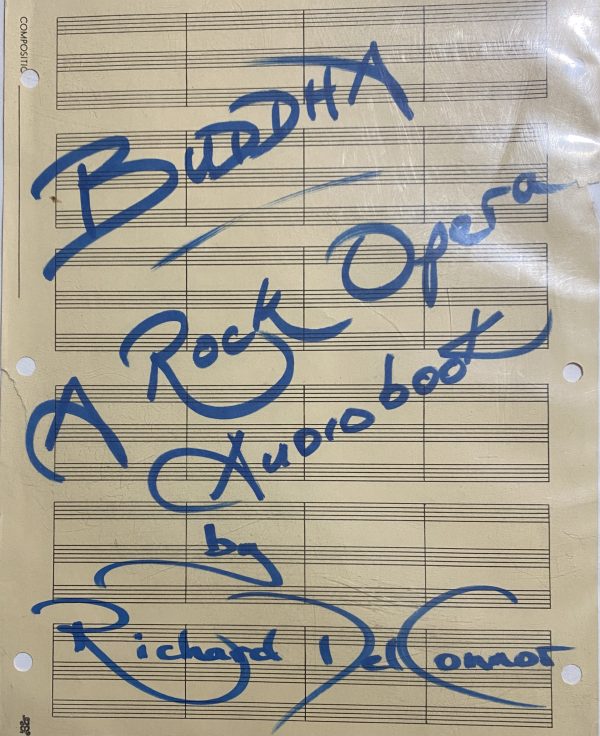 COMPOSITIO
BUDDHA
A Rock Opera
Audiobook
by
Richard Del Connor